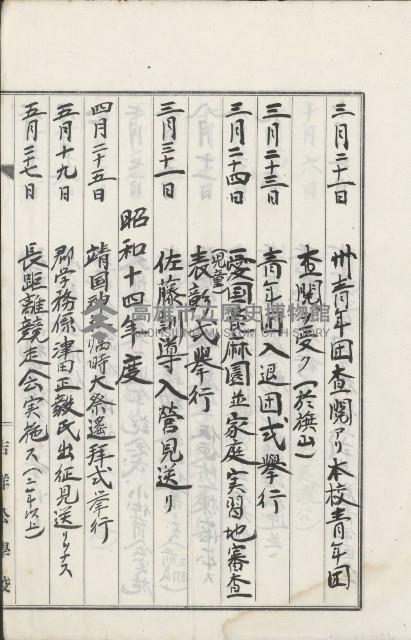 三月二十一日 州青年団査閲アリ 本校青年団
査閲ヲ受ク(於旗山)
三月二十三日 青年団入退団式擧行
三月二十四日 愛国蓖麻園並家庭実習地審査
(児童)表彰式擧行
三月三十一日 佐藤訓導入營見送リ
昭和十四年度
四月二十五日 靖国神社臨時大祭遙拝式挙行
五月十九日 郡学務係津田正毅氏出征見送リヲナス
五月二十七日 長距離競走会実施ス(三年以上)
高雄市立歷史博物館
KAOHSIUNG MUSEUM OF HISTORY
吉洋公學校